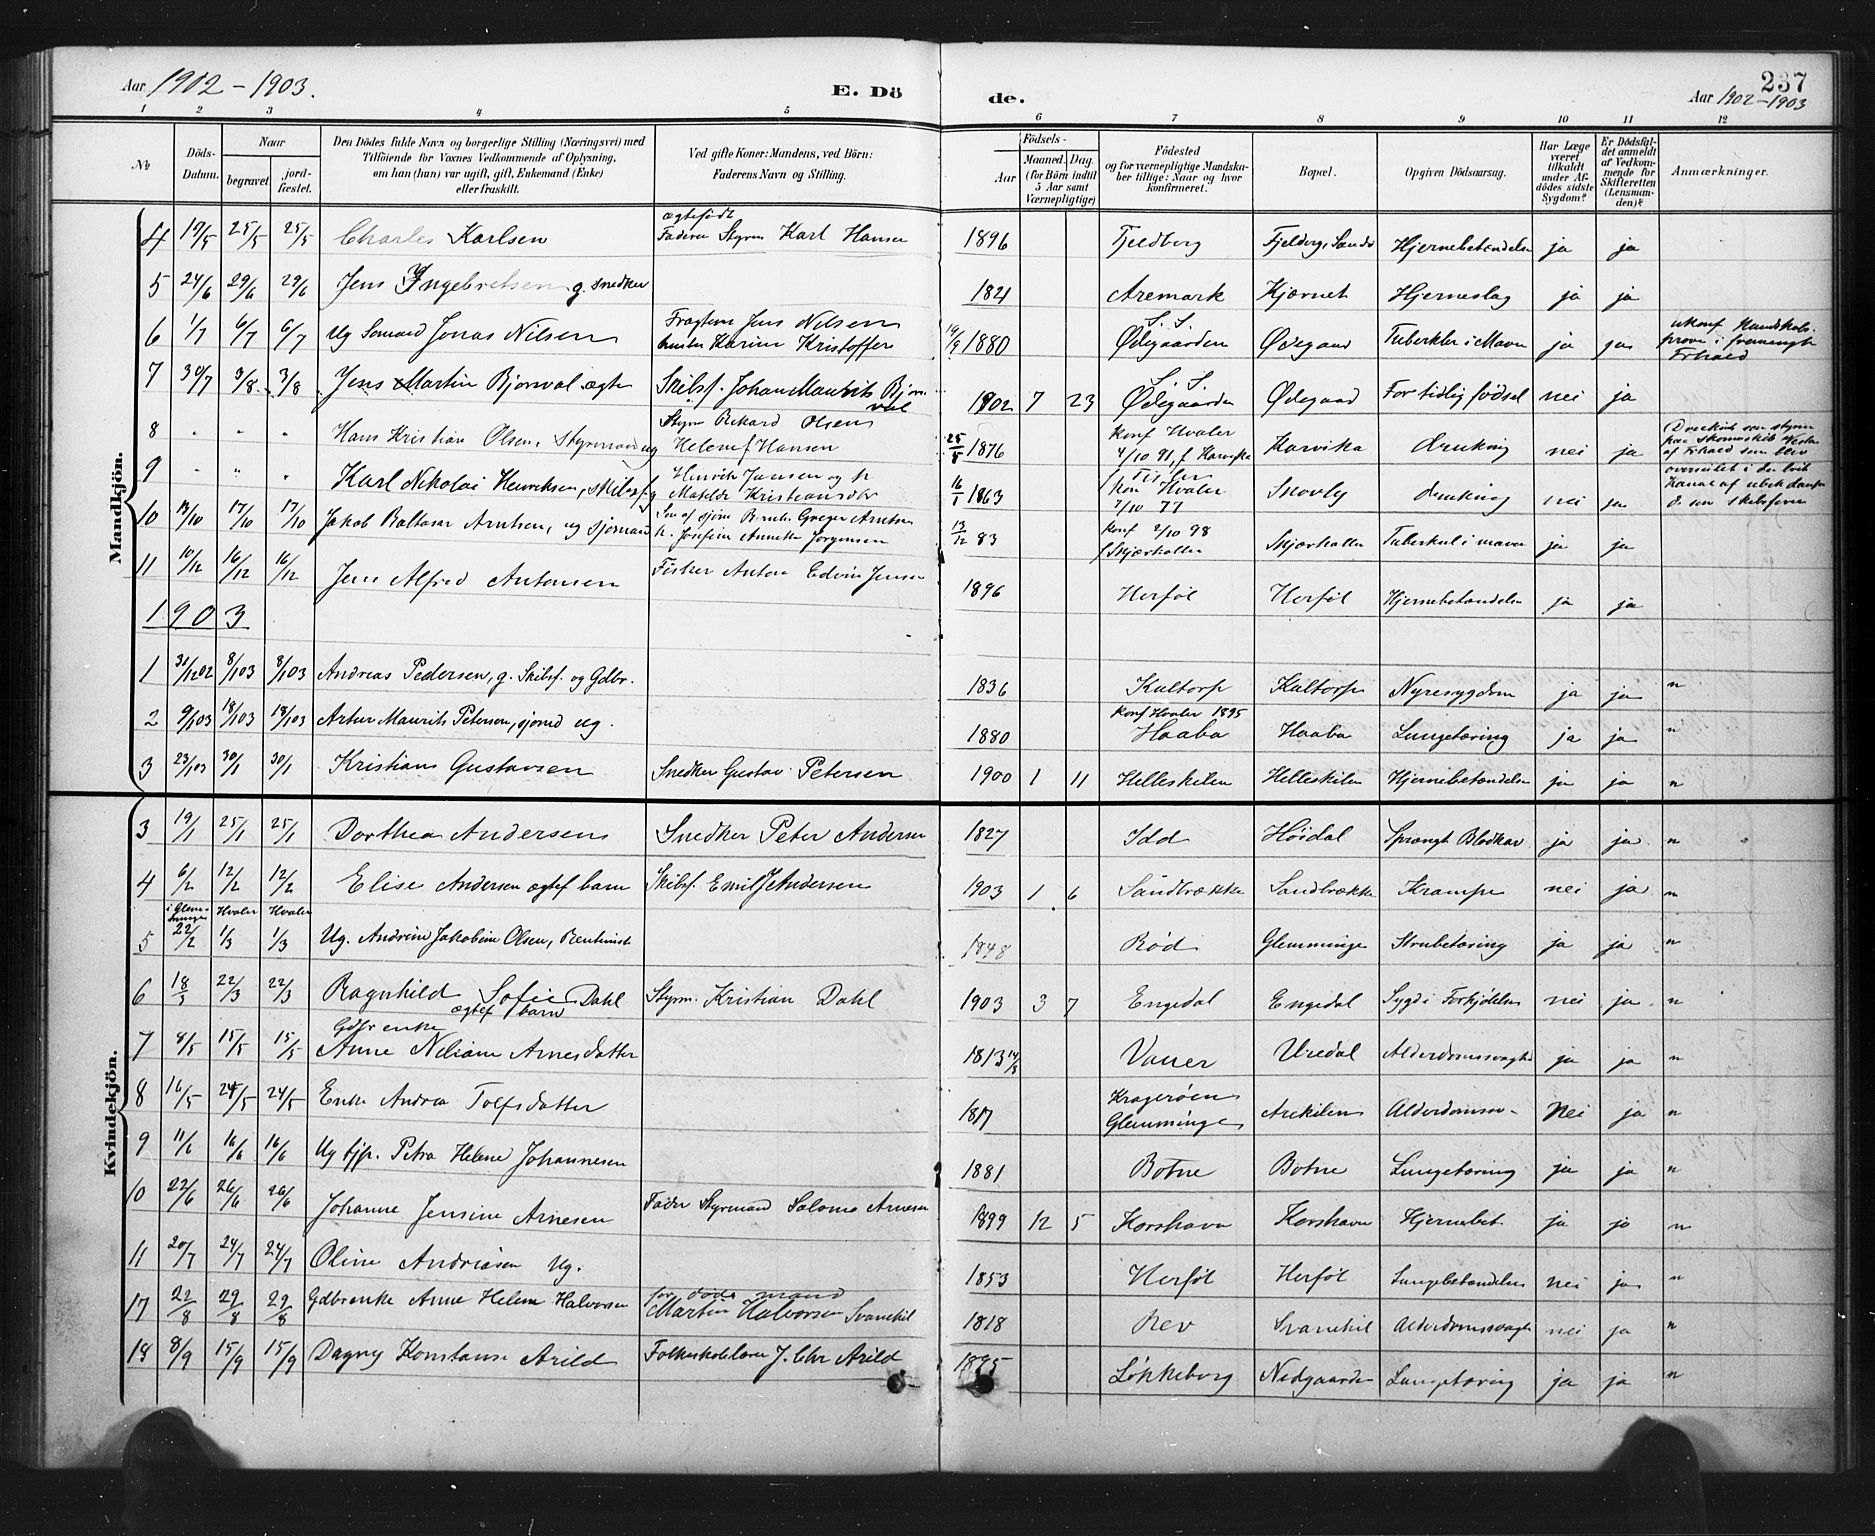 Aar 1902-1903. E. Dö de. Aar 1902-1903
237
1 2 3 4 5 6 7 8 9 10 11 12
No Döds-Datum. Naar begravet. jordfæstet. Den Dödes fulde Navn og borgerlige Stilling (Næringsvei) med Tilföiende for Voxnes Vedkommende af Oplysning, om han (hun) var ugift, gift, Enkemand (Enke) eller fraskilt. Ved gifte Koner: Mandens, ved Börn: Faderens Navn og Stilling. Födsels- Aar Maaned. Dag. (for Börn indtil 5 Aar samt Værnepligtige) Födested og for værnepligtige Mandskaber tillige: Naar og hvor konfirmeret. Bopæl. Opgiven Dödsaarsag. Har Læge været tilkaldt under Afdödes sidste Sygdom? Er Dödsfaldet anmeldt af Vedkommende for Skifteretten (Lensmanden)? Anmærkninger.
Mandkjön.
4 19/5 25/5 25/5 Charles Karlsen ægtefødt Faderen Styrm Karl Hansen 1896 Fjeldberg Fjelberg, Sandø Hjernebetændelse ja ja
5 24/6 29/6 29/6 Jens Ingebretsen g. snedker 1821 Aremark Kjærnet Hjerneslag ja ja
6 1/7 6/7 6/7 Ug Sømand Jonas Nilsen Fragtem Jens Nilsen hustru Karine Kristoffer 19/9 1880 S. S. Ødegaarden Ødegaard Tuberkler i Maven ja ja
7 30/7 3/8 3/8 Jens Martin Bjørnval ægte Skibsf. Johan Maurits Bjørnval 1902 7 23 S. S. Ødegaarden Ødegaard For tidlig fødsel nei ja
8 " " " Hans Kristian Olsen, Styrmand ug Styrm Rikard Olsen Helene f Hansen 25/5 1876 konf Hvaler 4/10 91, f Karvika Karvika drukning nei ja
9 " " " Karl Nikolai Henriksen, skibsf g Henrik Jansen og h Matilde Kristiansdtr 16/1 1863 f Kon Hvaler 7/10 77 drukning nei ja
10 13/10 17/10 17/10 Jakob Baltasar Arntsen, ug sjømand Greger Arntsen h. Josefine Annette Jørgensen 13/12 83 konf 2/10 98 f Skjærhallen Skjærhallen Tuberkul i maven ja ja
11 10/12 16/12 16/12 Jens Alfred Antonsen Fisker Anton Edvin Jensen 1896 Herføl Herføl Hjernebetændelse ja ja
1903
1 31/12 02 8/1 03 8/1 03 Andreas Pedersen, g. Skibsf. og Gdbr. 1836 Kultorp Kultorp Nyresygdom ja ja n
2 9/1 03 18/1 03 18/1 03 Artur Maurits Petersen, sjømd ug. 1880 Konf Hvaler 1895 Haaba Haaba Lungetæring ja ja n
3 23/1 03 30/1 30/1 Kristian Gustavsen Snedker Gustav Petersen 1900 1 11 Helleskilen Helleskilen Hjernebetændelse ja ja n
Kvindekjön.
3 19/1 25/1 25/1 Dorthea Andersen Snedker Peter Andersen 1827 Idd Høidal Sprængt Blodkar ja ja n
4 6/2 12/2 12/2 Elise Andersen ægtef barn Skibsf. Emil J Andersen 1903 1 6 Sandbrække Sandbrække Krampe nei ja n
5 i Glemminge 22/2 Hvaler 1/3 Hvaler 1/3 Ug. Andrine Jakobine Olsen, Rentenist 1848 Rød Glemminge Strubetæring ja ja n
6 18/3 22/3 22/3 Ragnhild Sofie Dahl ægtef barn Styrm. Kristian Dahl 1903 3 7 Engedal Engedal Syg i Forkjølelse nei ja n
7 8/5 15/5 15/5 Gdbr enke Anne Niliane Arnesdatter 1813 14/8 Vauer Uredal Alderdomssvaghed ja ja n
8 16/5 24/5 24/5 Enke Andrea Tolfsdatter 1817 Kragerøen Glemminge Arekilen Alderdomssv- Nei ja n
9 11/6 16/6 16/6 Ug tjp. Petra Helene Johannesen 1881 Botne Botne Lungetæring ja ja n
10 22/6 26/6 26/6 Johanne Jensine Arnesen Fader Styrmand Salomo Arnesen 1899 12 5 Korshavn Korshavn Hjernebet ja ja n
11 20/7 24/7 24/7 Oline Andreasen Ug. 1853 Herføl Herføl Lungebetændelse nei ja n
17 22/8 29/8 29/8 Gdbrenke Anne Helene Halvorsen for døde mand Martin Halvorsen Svanekil 1818 Rev Svanekil Alderdomssvagh nei ja n
18 8/9 15/9 15/9 Dagny Konstanse Arild Folkeskolelærer J. Chr Arild 1895 Løkkeberg Nedgaarden Lungetæring ja ja n